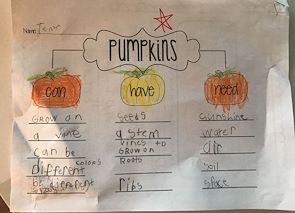 Name:
PUMPKINS
can
have
need
Grow on
a vine
can be
Different
colors
be different
Seeds
a stem
vines to
Grow on
Roots
ribs
Sunshine
water
air
soil
space